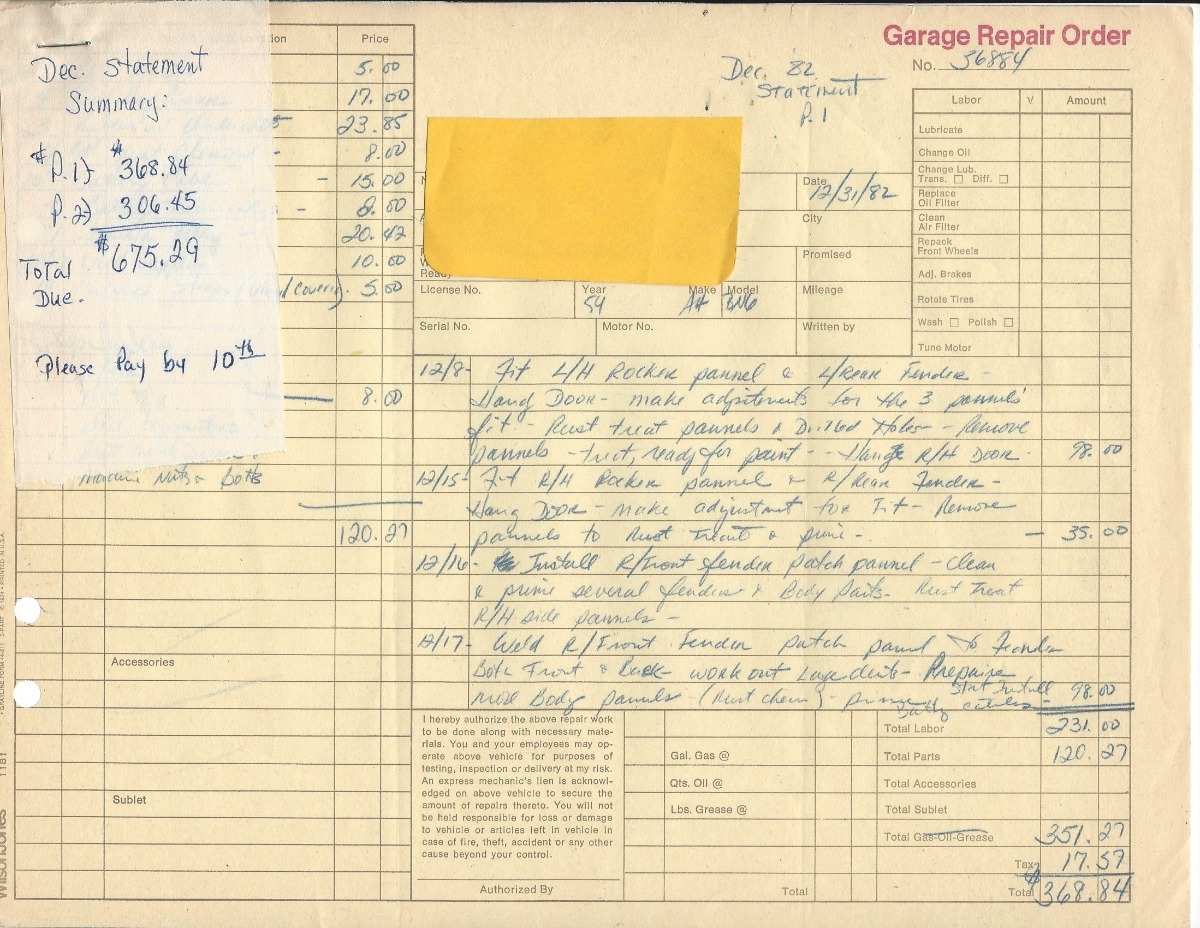 Dec. Statement
Summary:
$ P.1) $368.84
P.2) 306.45
$675.29
Total
Due.
Please Pay by 10th
ion Price
5.00
17.00
23.85
8.00
- 15.00
- 8.00
20.42
10.00
covering). 5.00
8.00
machine Nuts & bolts
120.27
Accessories
Sublet
Garage Repair Order
No. 36884
Dec. '82
Statement
P. 1
Date 12/31/82
City
Promised
Ready
License No. Year 54 Make AH Model BN6 Mileage
Serial No. Motor No. Written by
Labor √ Amount
Lubricate
Change Oil
Change Lub.
Trans. ☐ Diff. ☐
Replace
Oil Filter
Clean
Air Filter
Repack
Front Wheels
Adj. Brakes
Rotate Tires
Wash ☐ Polish ☐
Tune Motor
12/8- Fit L/H Rocker pannel & L/Rear Fender -
Hang Door - make adjustements for the 3 pannels
fit - Rust treat pannels & Drilled Holes - Remove
pannels - treat, ready for paint - Hange R/H Door - 98.00
12/15- Fit R/H Rocker pannel & R/Rear Fender -
Hang Door - make adjustment for Fit - Remove
pannels to Rust Treat & prime - - 35.00
12/16- Install R/Front fender patch pannel - Clean
& prime several fenders & Body parts - Rust Treat
R/H side pannels -
12/17- Weld R/Front Fender patch panel to Fender
Both Front & Back - work out Large dents - Prepaire
more Body pannels - (Rust chem) - 98.00
I hereby authorize the above repair work
to be done along with necessary mate-
rials. You and your employees may op-
erate above vehicle for purposes of
testing, inspection or delivery at my risk.
An express mechanic's lien is acknowl-
edged on above vehicle to secure the
amount of repairs thereto. You will not
be held responsible for loss or damage
to vehicle or articles left in vehicle in
case of fire, theft, accident or any other
cause beyond your control.
Authorized By
Gal. Gas @
Qts. Oil @
Lbs. Grease @
Total
Total Labor 231.00
Total Parts 120.27
Total Accessories
Total Sublet
Total Gas-Oil-Grease 351.27
Tax 17.57
Total $368.84
WilsonJones
1181